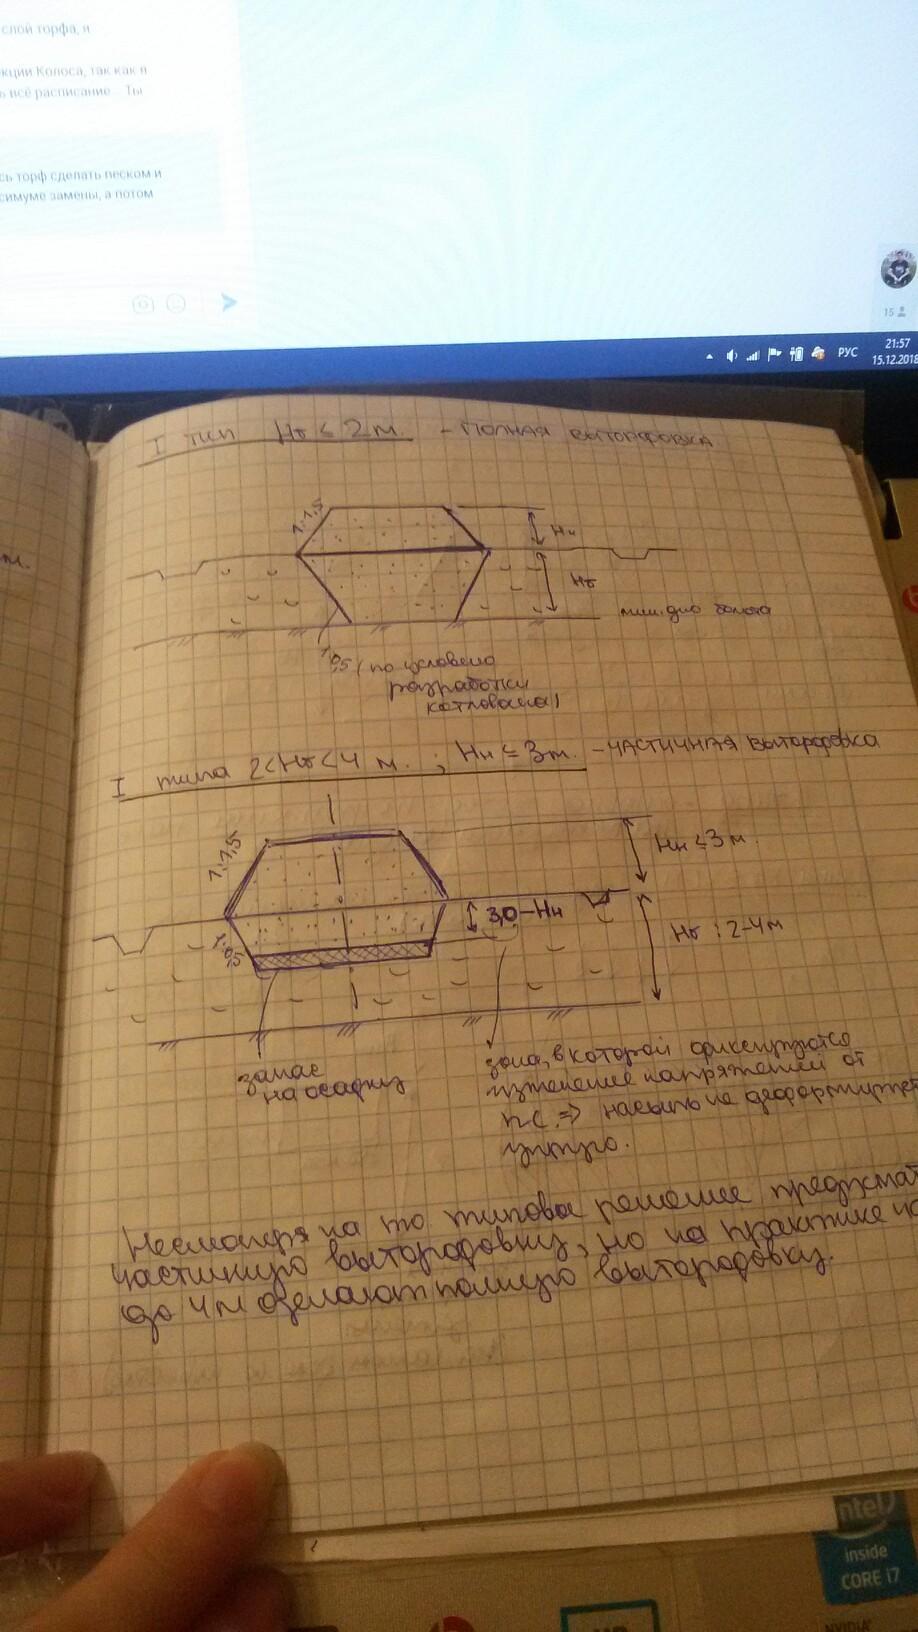 слой торфа, я
кции Колоса, так как я
ь всё расписание... Ты
сь торф сделать песком и
симуме замены, а потом
15
РУС
21:57
15.12.2018
I тип Hб ≤ 2м. - полная выторфовка
1:1,5
Hн
Hб
м.
мин. дно болота
1:0,5 (по условию
разработки
котлована)
I типа 2<Hб<4 м. ; Hн ≤ 3м. - частичная выторфовка
1:1,5
Hн ≤ 3м.
3,0-Hн
1:0,5
Hб : 2-4м
запас
на осадку
зона, в которой фиксируются
изменение напряжений от
п.с. => насыпь не деформирует
упруго.
Несмотря на то типовое решение предусмат
частичную выторфовку, но на практике
до 4м делают полную выторфовку.
intel
inside
CORE i7
NVIDIA